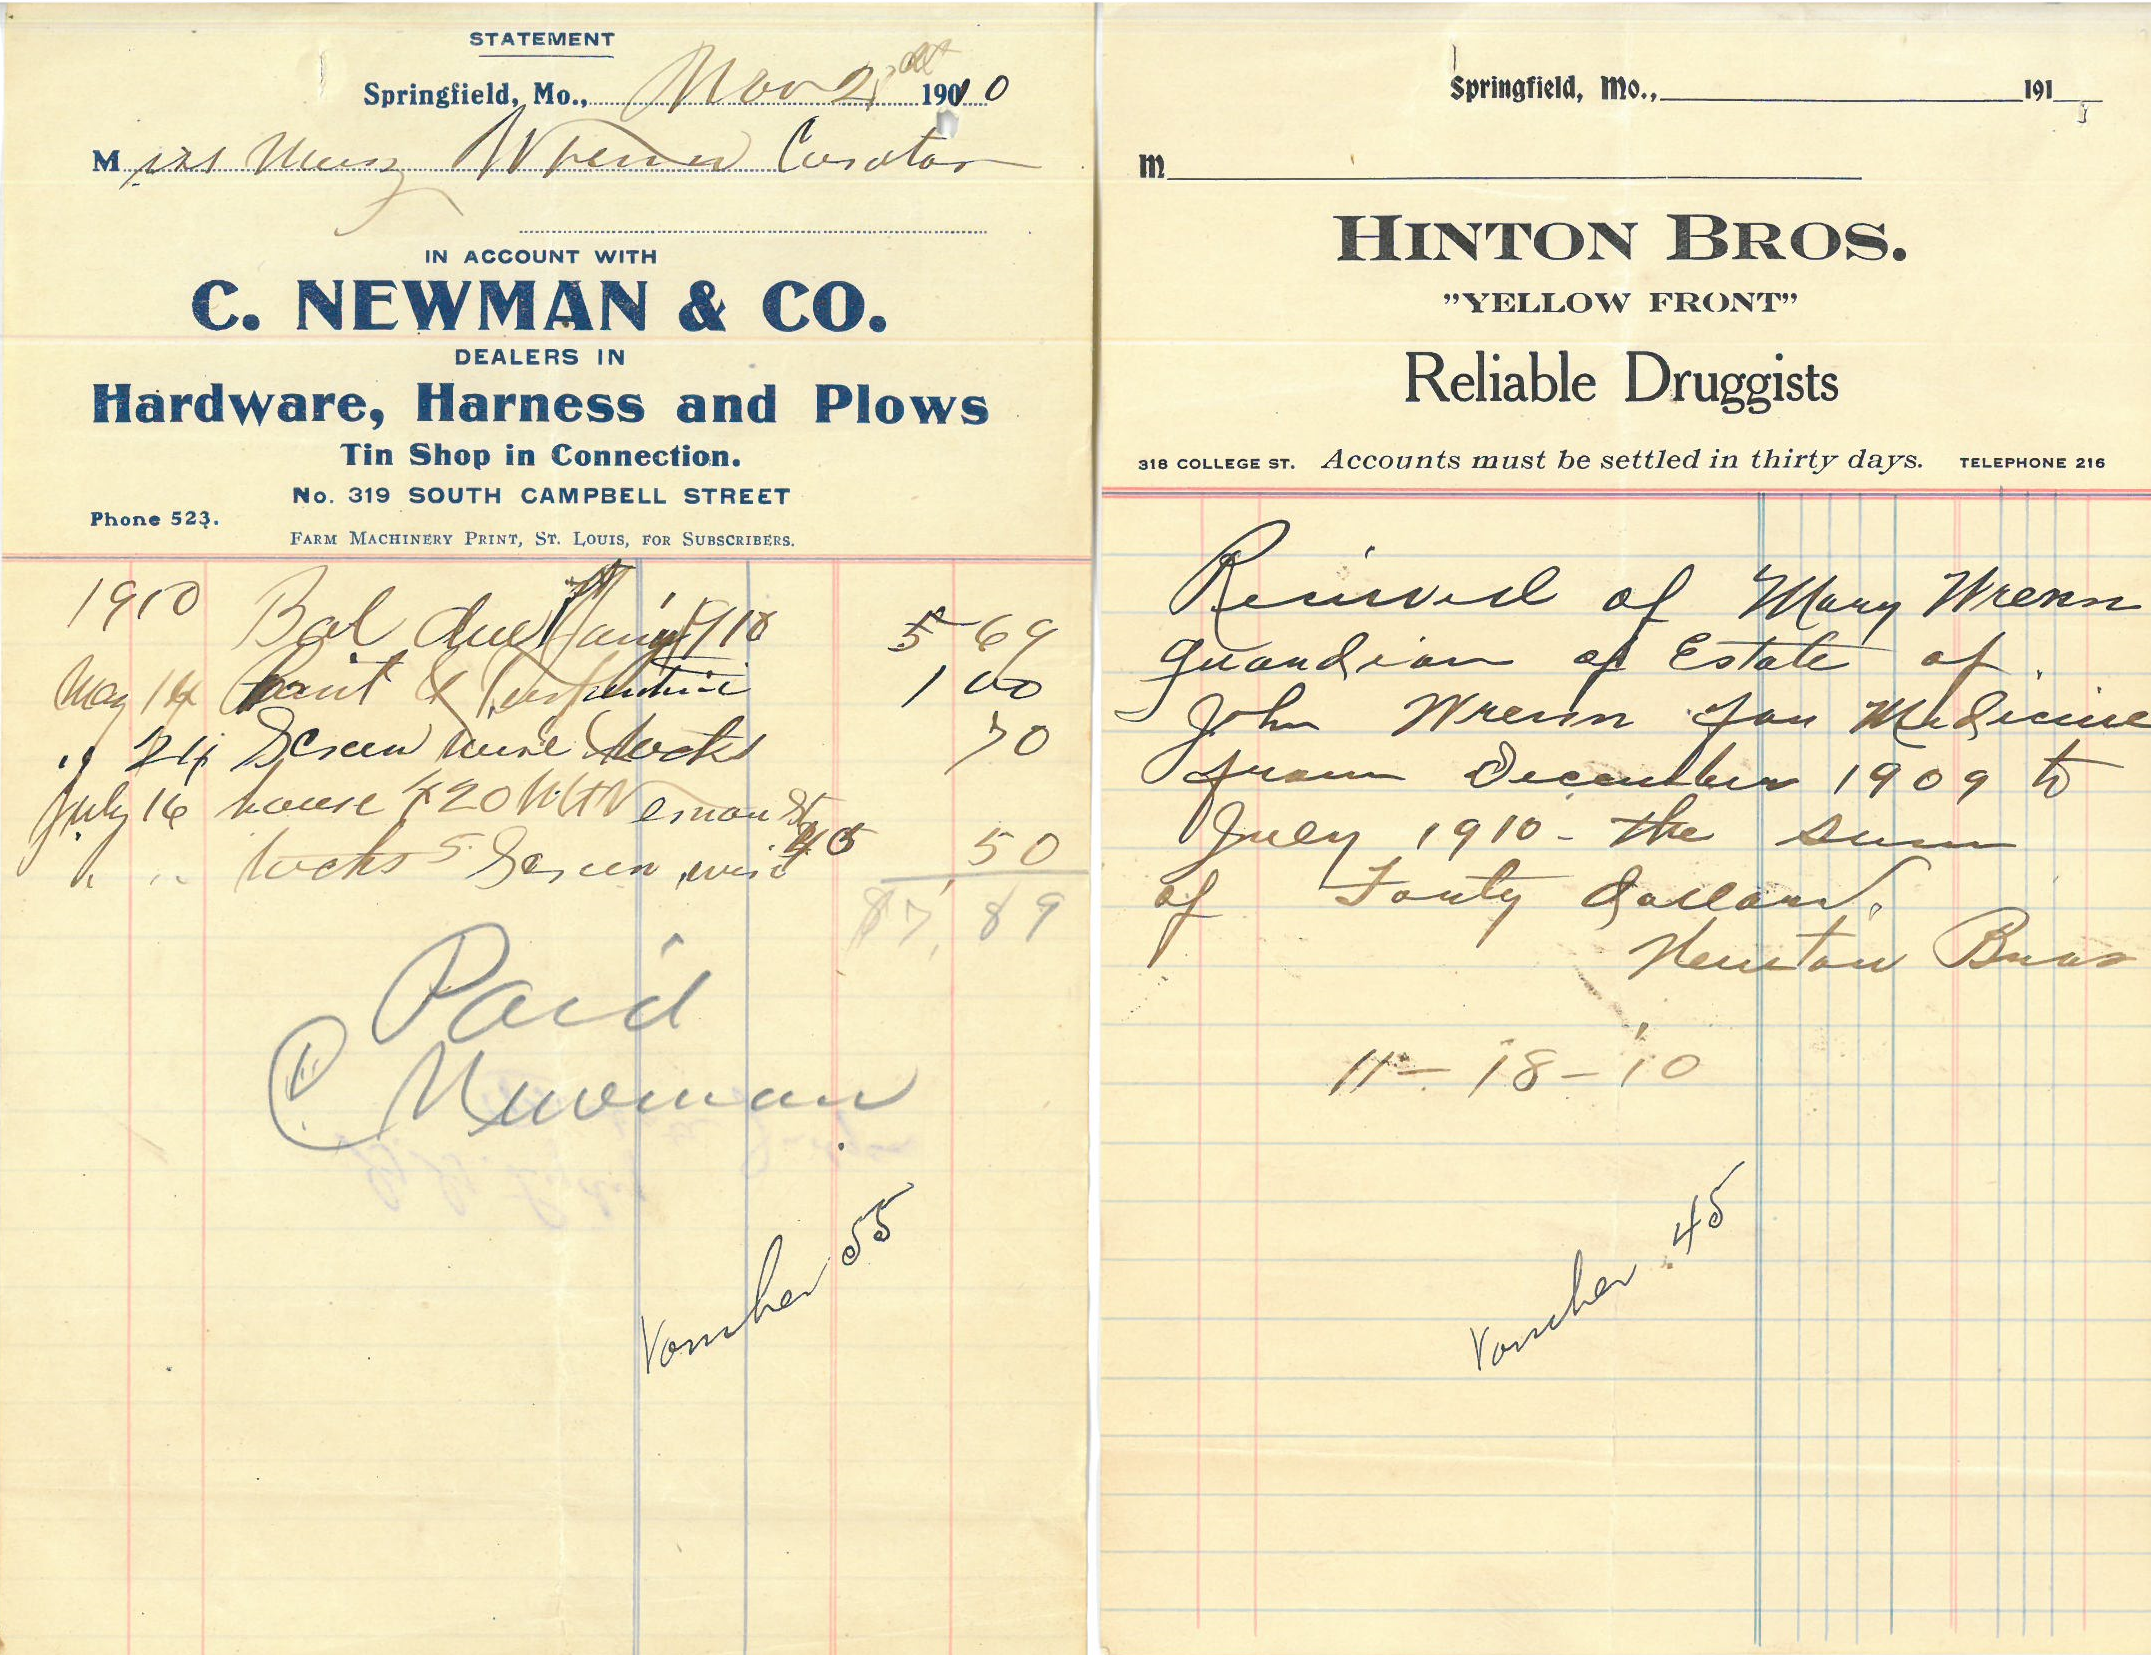 STATEMENT
Springfield, Mo., Nov 2 1910
Mrs Mary Wrenn Curator
IN ACCOUNT WITH
C. NEWMAN & CO.
DEALERS IN
Hardware, Harness and Plows
Tin Shop in Connection.
No. 319 SOUTH CAMPBELL STREET
Phone 523.
FARM MACHINERY PRINT, ST. LOUIS, FOR SUBSCRIBERS.
1910 Bal due 5 69
May 14 Paint & Turpentine 1 00
" 24 Screen wire tacks 70
July 16 house 420 St
" " tacks 5 Screen wire 45 50
$7.89
Paid
C Newman
Voucher 55
Springfield, Mo., 191
M
HINTON BROS.
"YELLOW FRONT"
Reliable Druggists
318 COLLEGE ST. Accounts must be settled in thirty days. TELEPHONE 216
Recieved of Mary Wrenn
guardian of Estate of
John Wrenn for Medicine
from December 1909 to
July 1910 - the sum
of Forty dollars.
Hinton Bros
11-18-10
Voucher 45